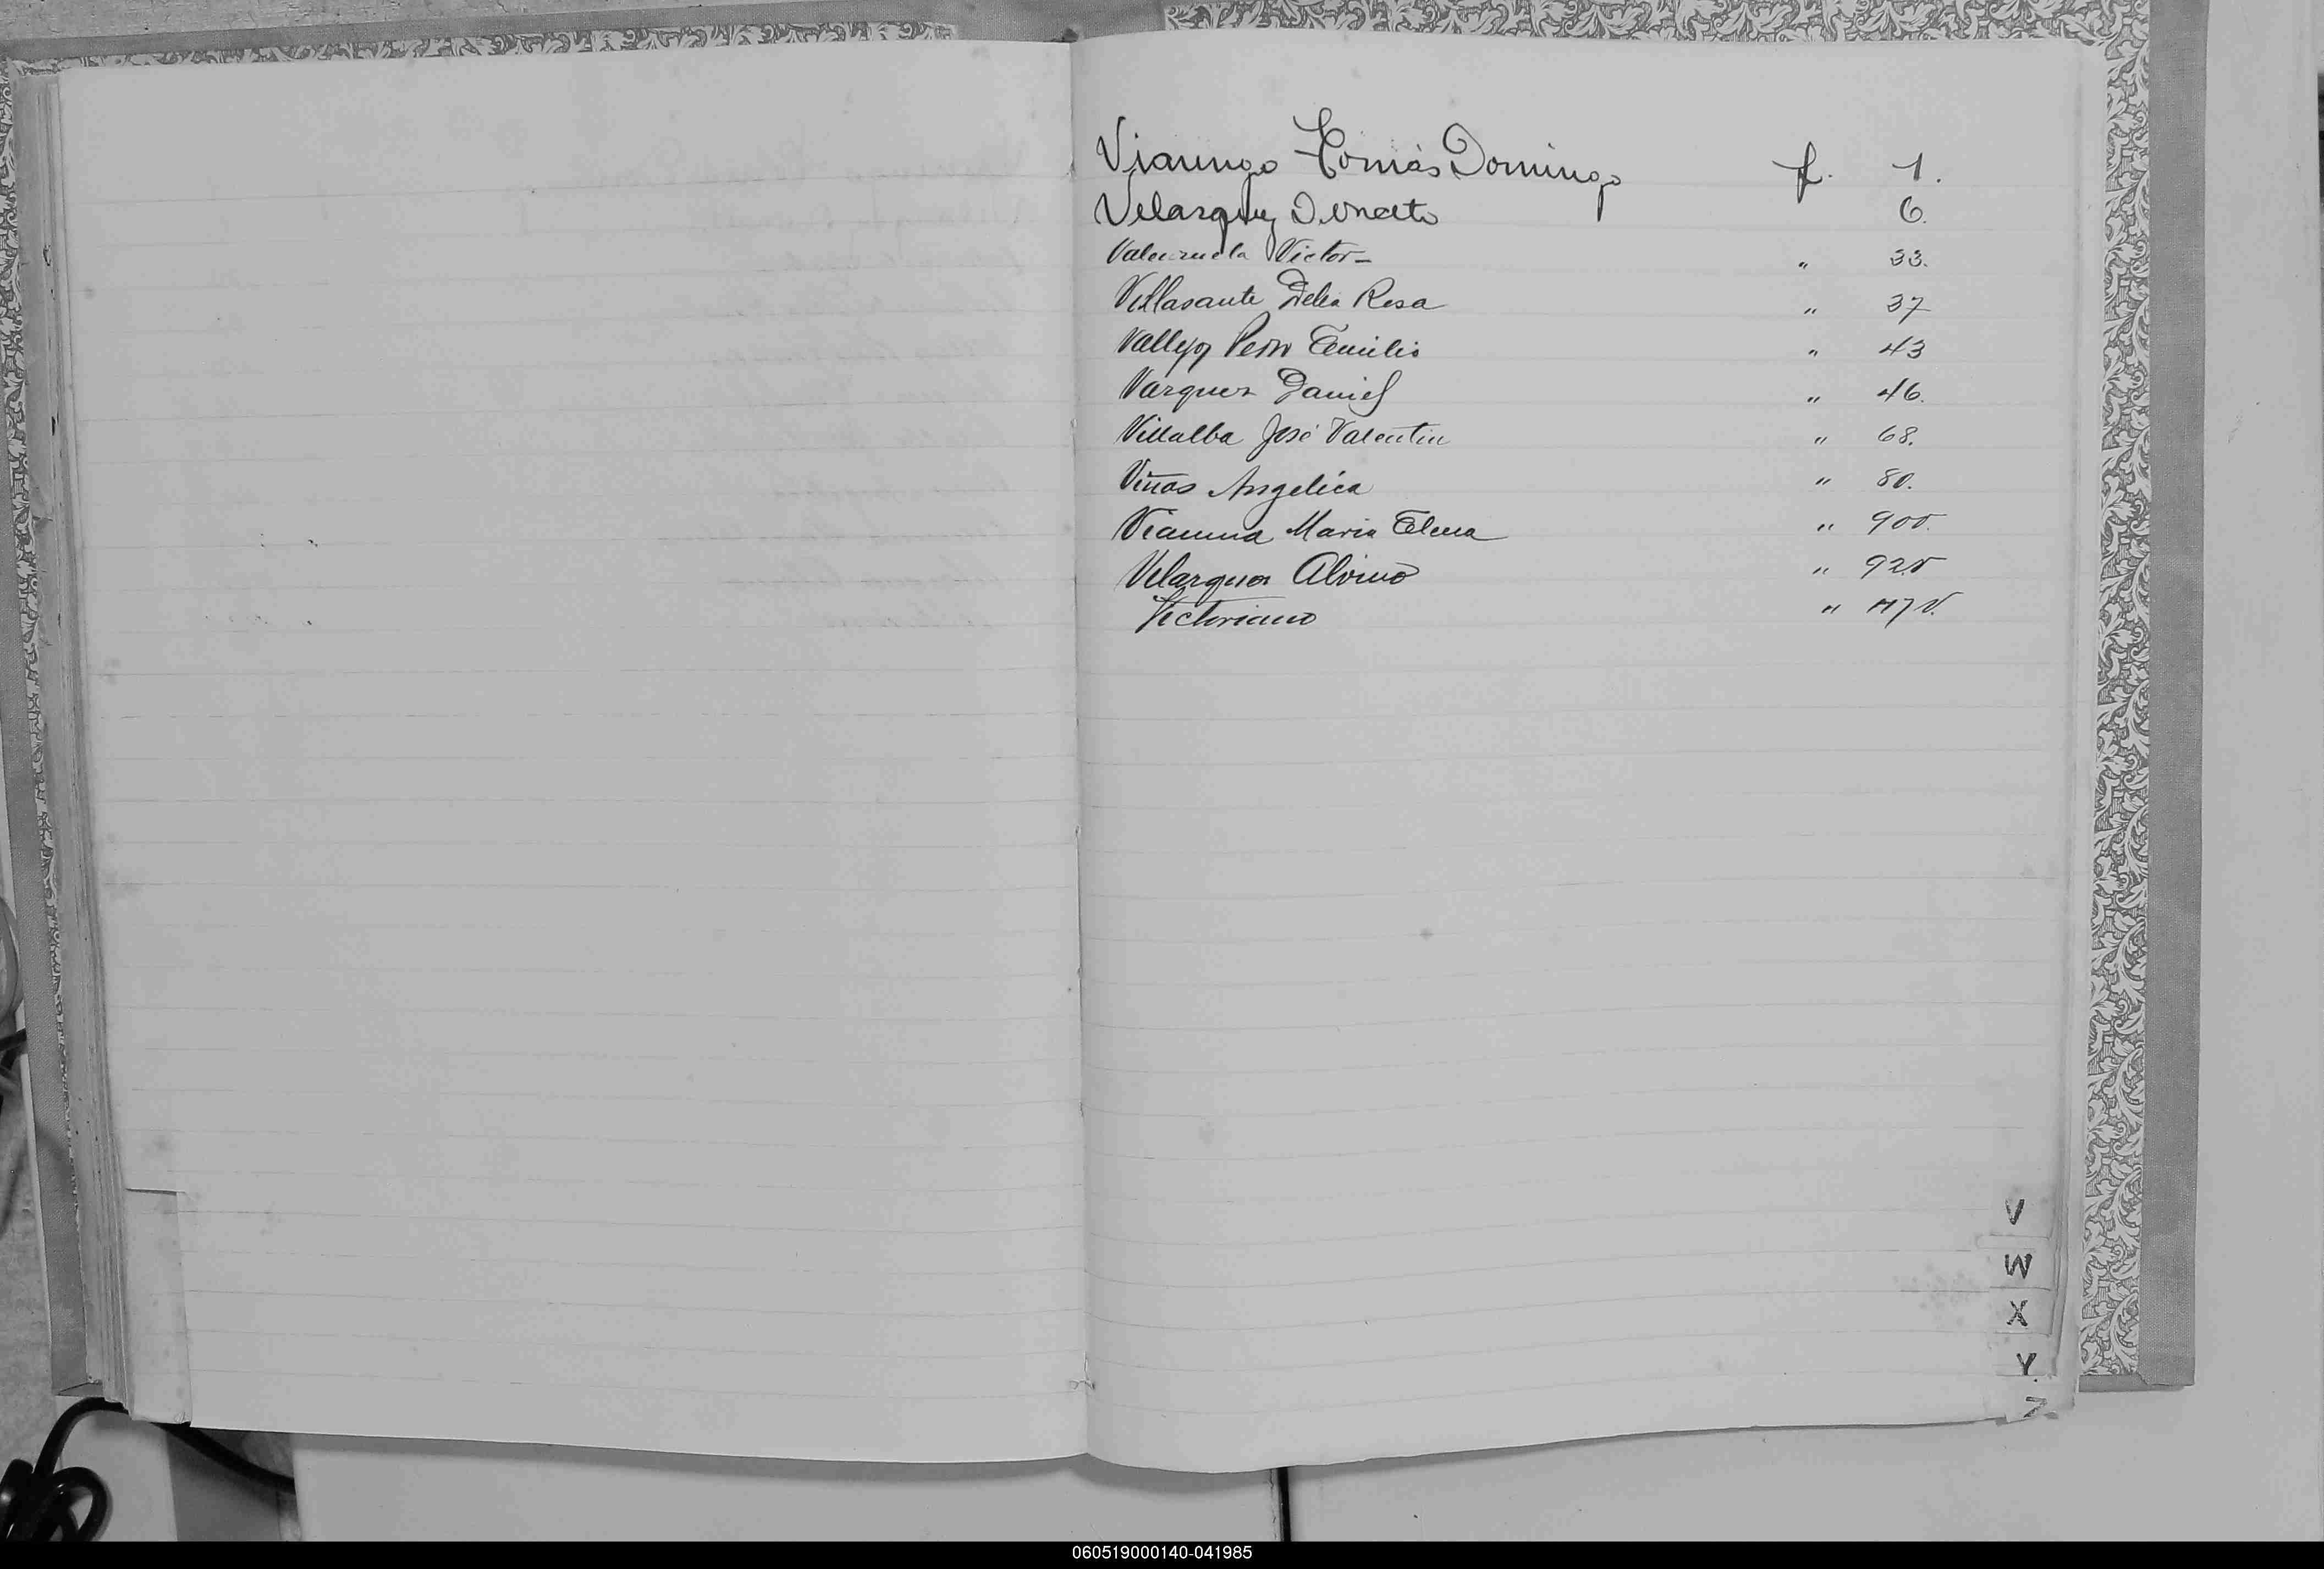 Viaungo Tomás Domingo f. 1.
Velazquez Donato 6.
Valenzuela Victor - " 33.
Villasante Delia Rosa " 37
Vallejos Pedro Emilio " 43
Vazquez Daniel " 46.
Villalba José Valentin " 68.
Viñas Angelica " 80.
Vianna Maria Elena " 90v.
Velazquez Alvino " 92v
Victoriano " 117v.
V
W
X
Y
Z
060519000140-041985